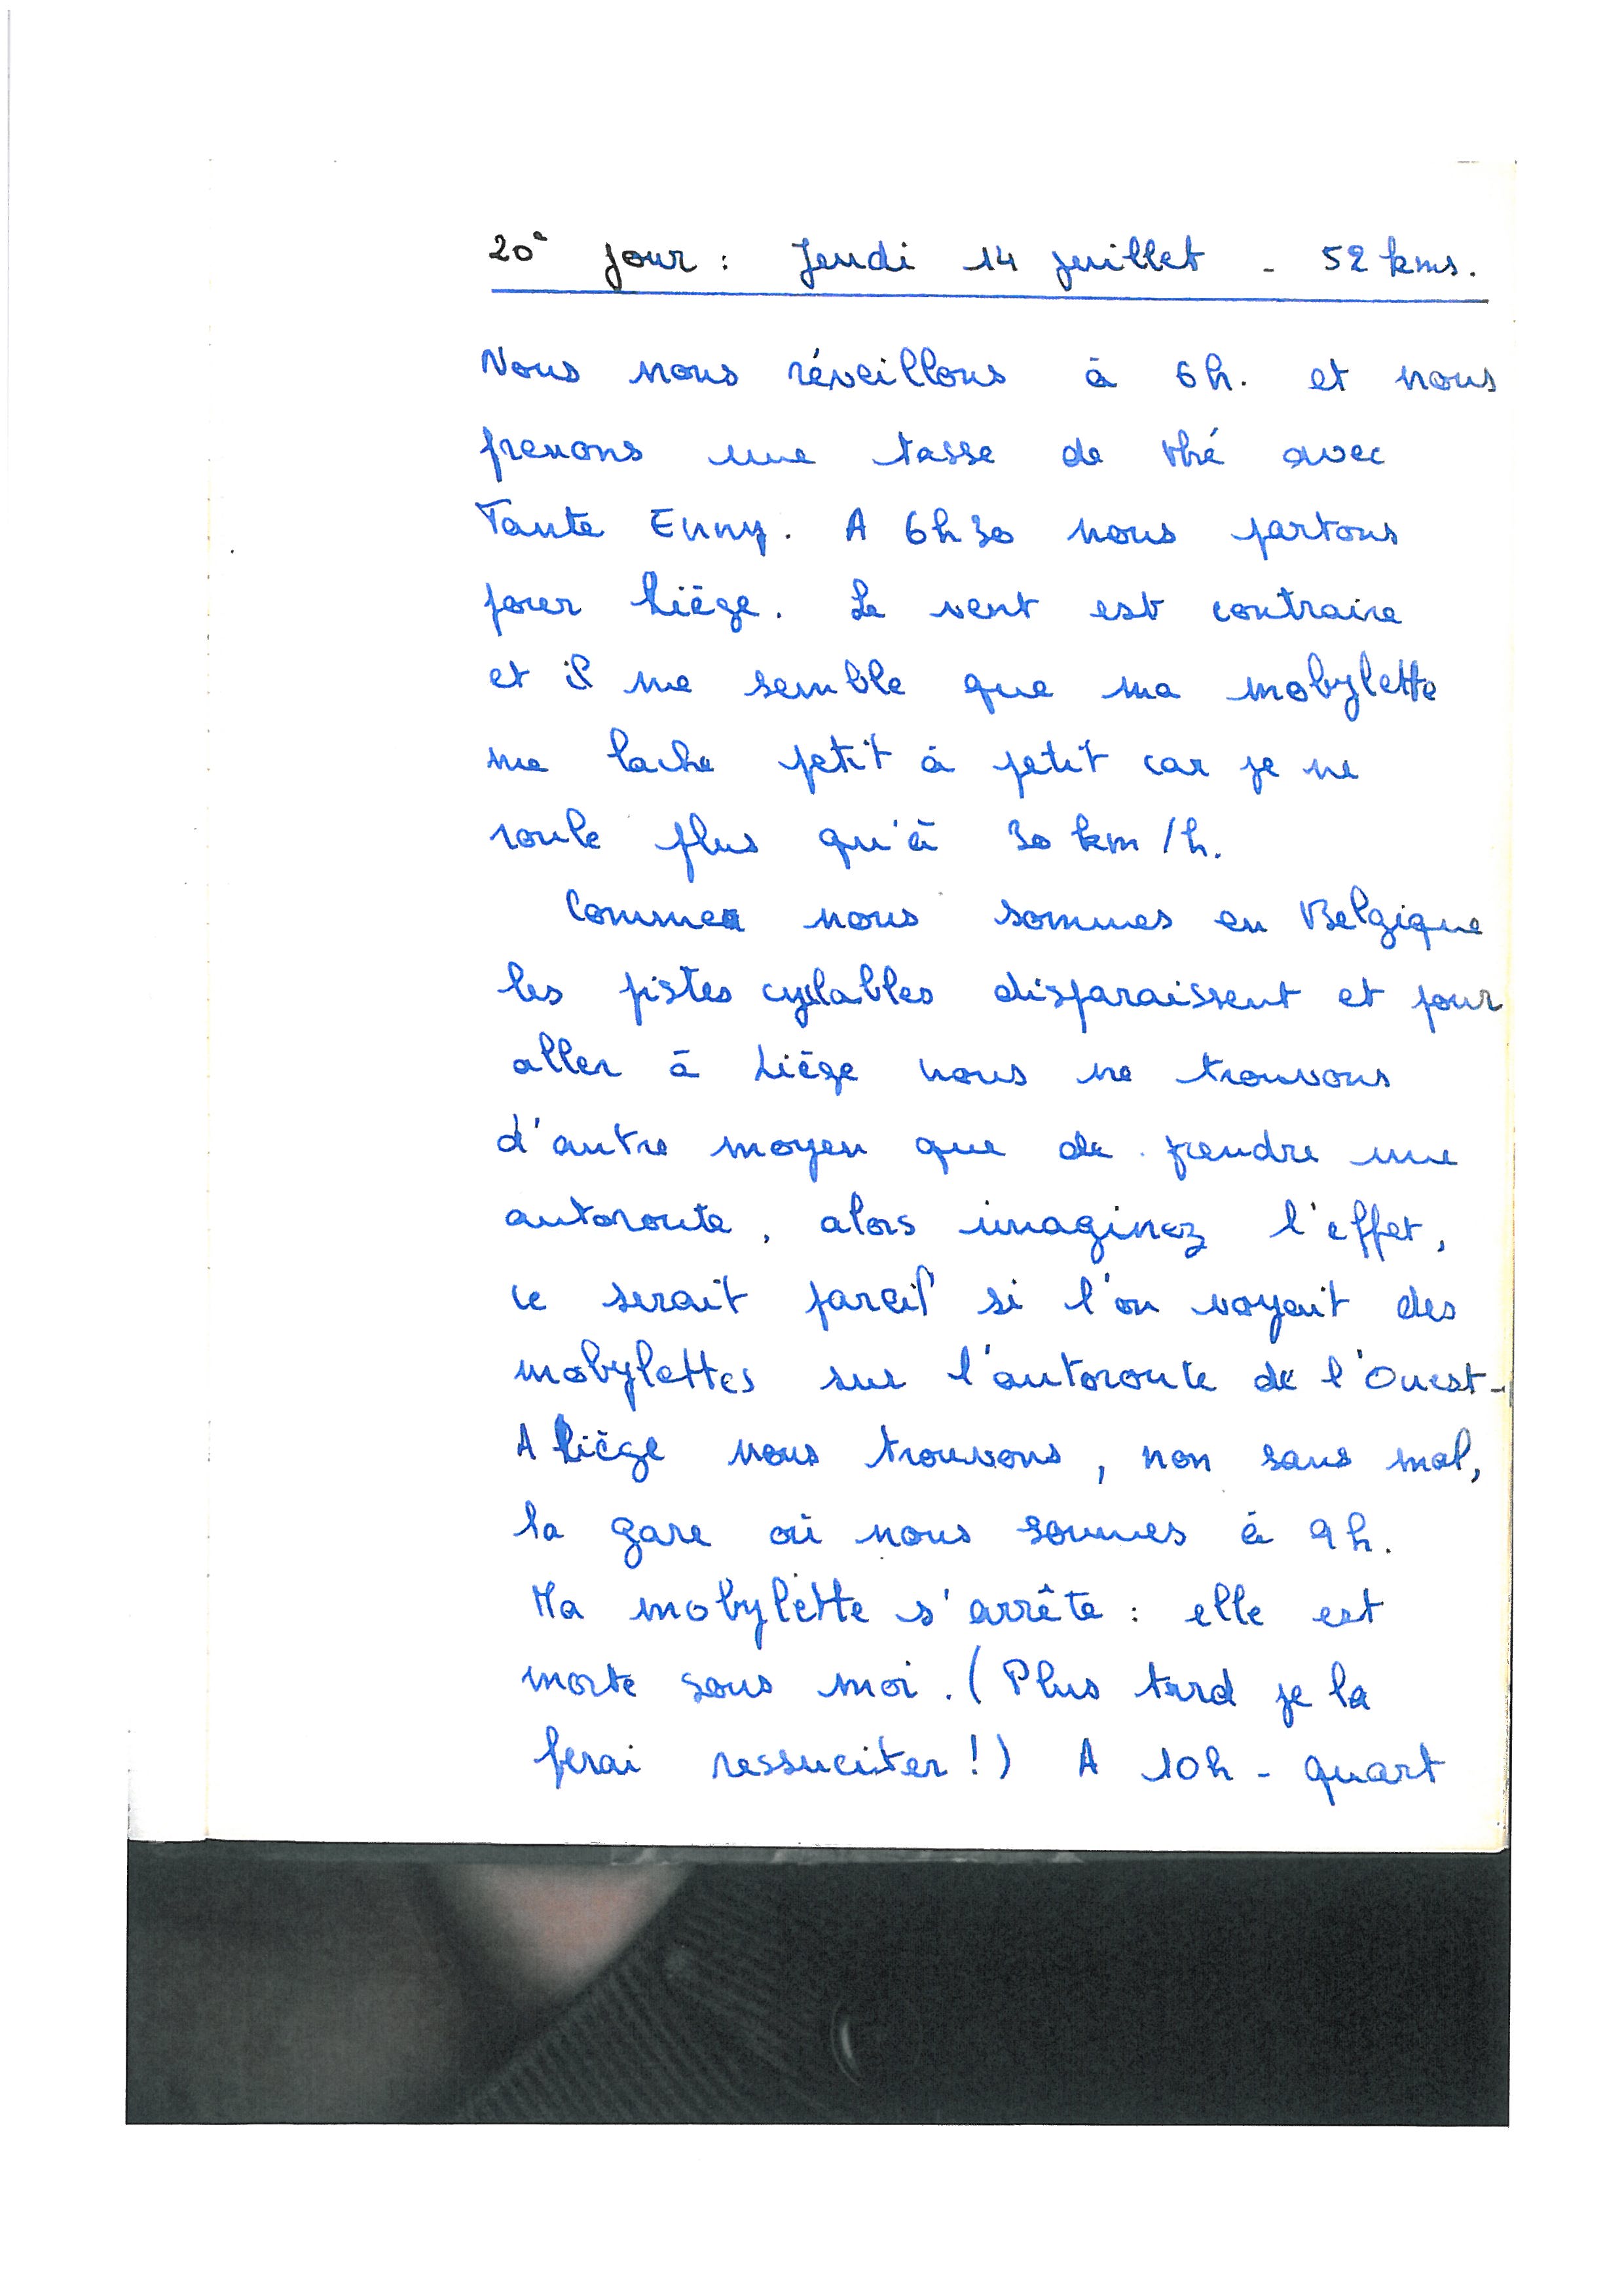 20e jour : Jeudi 14 juillet - 52 kms.
Nous nous réveillons à 6h. et nous
prenons une tasse de thé avec
Tante Enny. A 6h30 nous partons
pour Liège. Le vent est contraire
et il me semble que ma mobylette
me lache petit à petit car je ne
roule plus qu'à 30 km/h.
Comme nous sommes en Belgique
les pistes cyclables disparaissent et pour
aller à Liège nous ne trouvons
d'autre moyen que de prendre une
autoroute, alors imaginez l'effet,
ce serait pareil si l'on voyait des
mobylettes sur l'autoroute de l'Ouest-
A Liège nous trouvons, non sans mal,
la gare où nous sommes à 9h.
Ma mobylette s'arrête : elle est
morte sous moi. (Plus tard je la
ferai ressuciter !) A 10h - quart